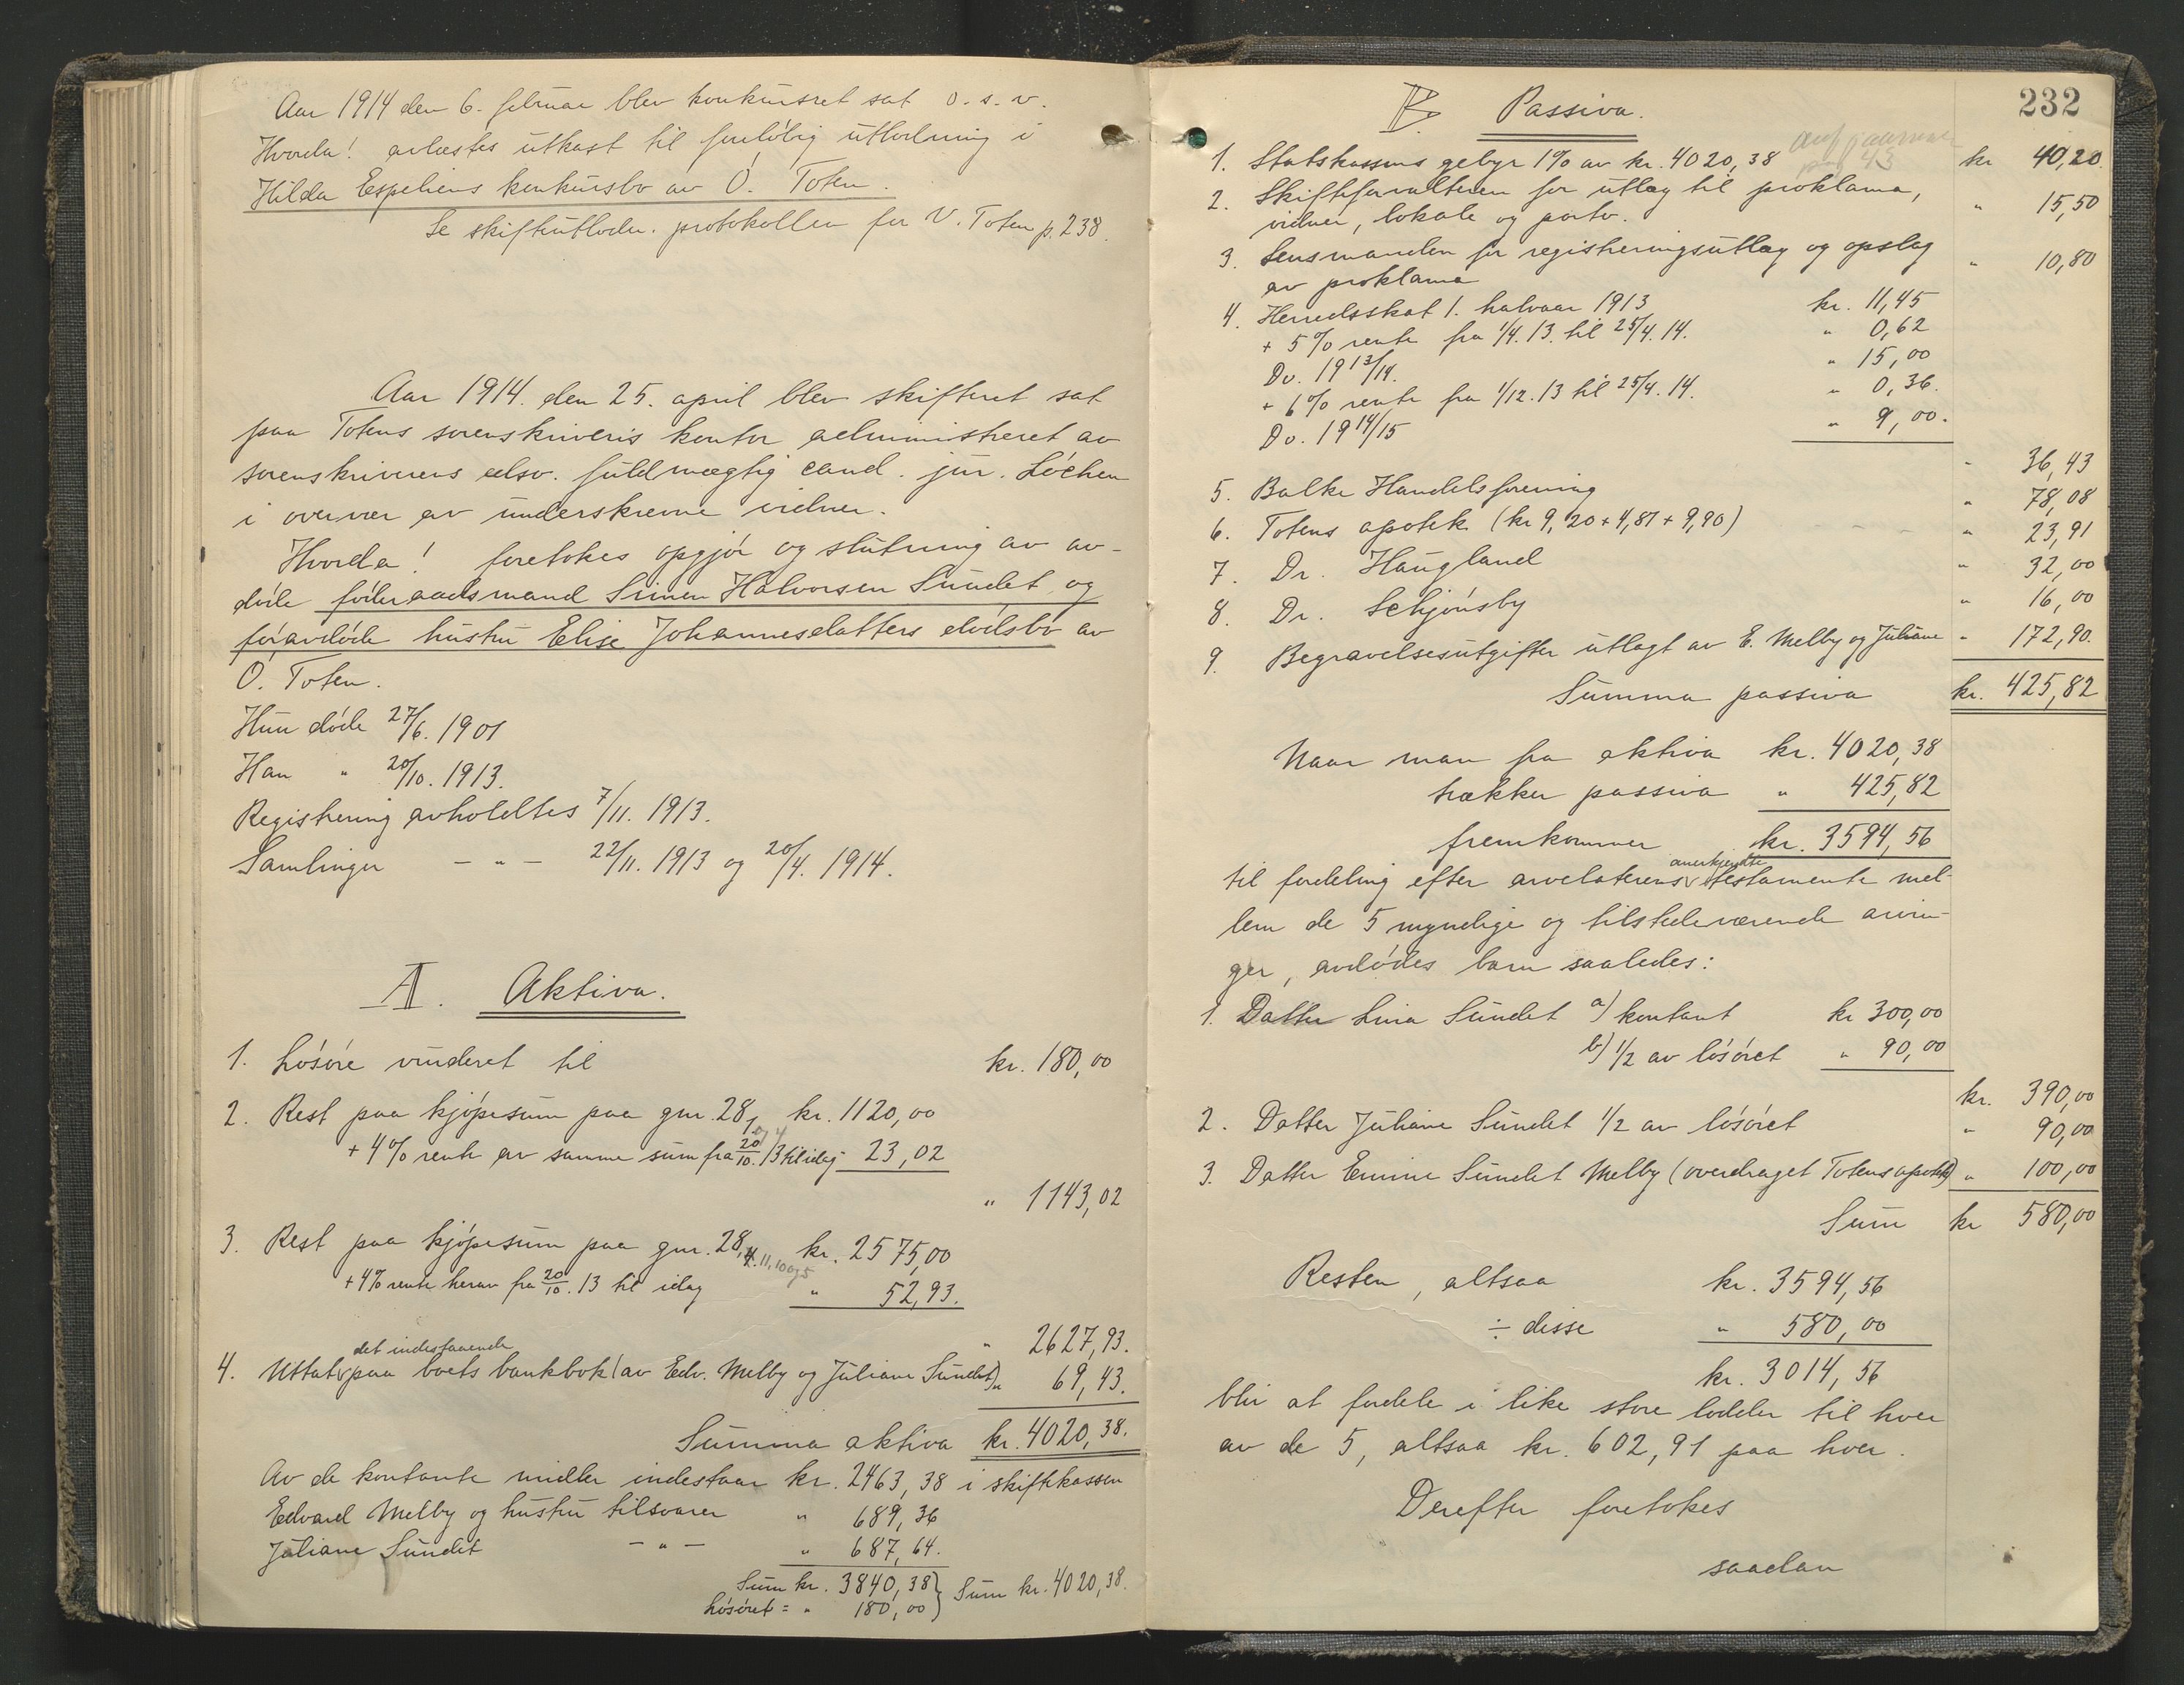 Aar 1914 den 6. februar blev konkursret sat o. s. v.
Hvorda! avlæstes utkast til foreløbig utlodning i
Hilda Espeliens konkursbo av Ø. Toten.
Se skifteutlodn. protokollen for V. Toten p. 238.
Aar 1914. den 25. april blev skifteret sat
paa Totens sorenskriveris kontor administreret av
sorenskriverens edsv. fuldmægtig cand. jur. Løchen
i overvær av underskrevne vidner.
Hvorda! foretokes opgjør og slutning av av-
døde føderaadsmand Simen Halvorsen Sundet og
føravdøde hustru Elise Johannesdatters dødsbo av
Ø. Toten.
Hun døde 27/6. 1901
Han " 20/10. 1913.
Registrering avholdtes 7/11. 1913.
Samlinger - " - 22/11. 1913 og 20/4. 1914.
A. Aktiva.
1. Løsøre vurderet til kr. 180,00
2. Rest paa kjøpesum paa gnr. 28, kr. 1120,00
+ 4% rente av samme sum fra 20/10. 13 til idag 23,02
" 1143,02
3. Rest paa kjøpesum paa gnr. 28, 11, 10 og 5 kr. 2575,00
+ 4% rente herav fra 20/10. 13 til idag " 52,93.
" 2627,93.
det indestaaende
4. Uttat paa boets bankbok (av Edv. Melby og Juliane Sundet) " 69,43.
Summa aktiva kr. 4020,38.
Av de kontante midler indestaar kr. 2463,38 i skiftekassen
Edvard Melby og hustru tilsvarer " 689,36
Juliane Sundet - " - " 687,64.
Sum kr. 3840,38 } Sum kr. 4020,38.
Løsøret = " 180,00 }
232
B. Passiva.
1. Statskassens gebyr 1% av kr. 4020,38 kr 40,20
2. Skifteforvalteren for utlæg til proklama,
vidner, lokale og porto. " 15,50
3. Lensmanden for registreringsutlæg og opslag
av proklama " 10,80
4. Herredsskat 1. halvaar 1913 kr. 11,45
+ 5% rente fra 1/4. 13. til 25/4. 14. " 0,62
Do. 1913/14. " 15,00
+ 6% rente fra 1/12. 13 til 25/4. 14. " 0,36.
Do. 1914/15 " 9,00.
" 36,43
5. Balke Handelsforening " 78,08
6. Totens apotek (kr 9,20 + 4,81 + 9,90) " 23,91
7. Dr. Haugland " 32,00
8. Dr. Schjønsby " 16,00
9. Begravelsesutgifter utlagt av E. Melby og Juliane " 172,90.
Summa passiva kr. 425,82
Naar man fra aktiva kr. 4020,38
trækker passiva " 425,82
fremkommer kr. 3594,56
anerkjendte
til fordeling efter arvelaterens testamente mel-
lem de 5 myndige og tilstedeværende arvin-
ger, avdødes barn saaledes:
1. Datter Lina Sundet a) kontant kr 300,00
b) 1/2 av løsøret " 90,00
kr. 390,00
2. Datter Juliane Sundet 1/2 av løsøret " 90,00
3. Datter Emine Sundet Melby (overdraget Totens apotek) " 100,00
Sum kr 580,00
Resten, altsaa kr. 3594,56
÷ disse " 580,00
kr. 3014,56
blir at fordele i like store lodder til hver
av de 5, altsaa kr. 602,91 paa hver.
Derefter foretokes
saadan